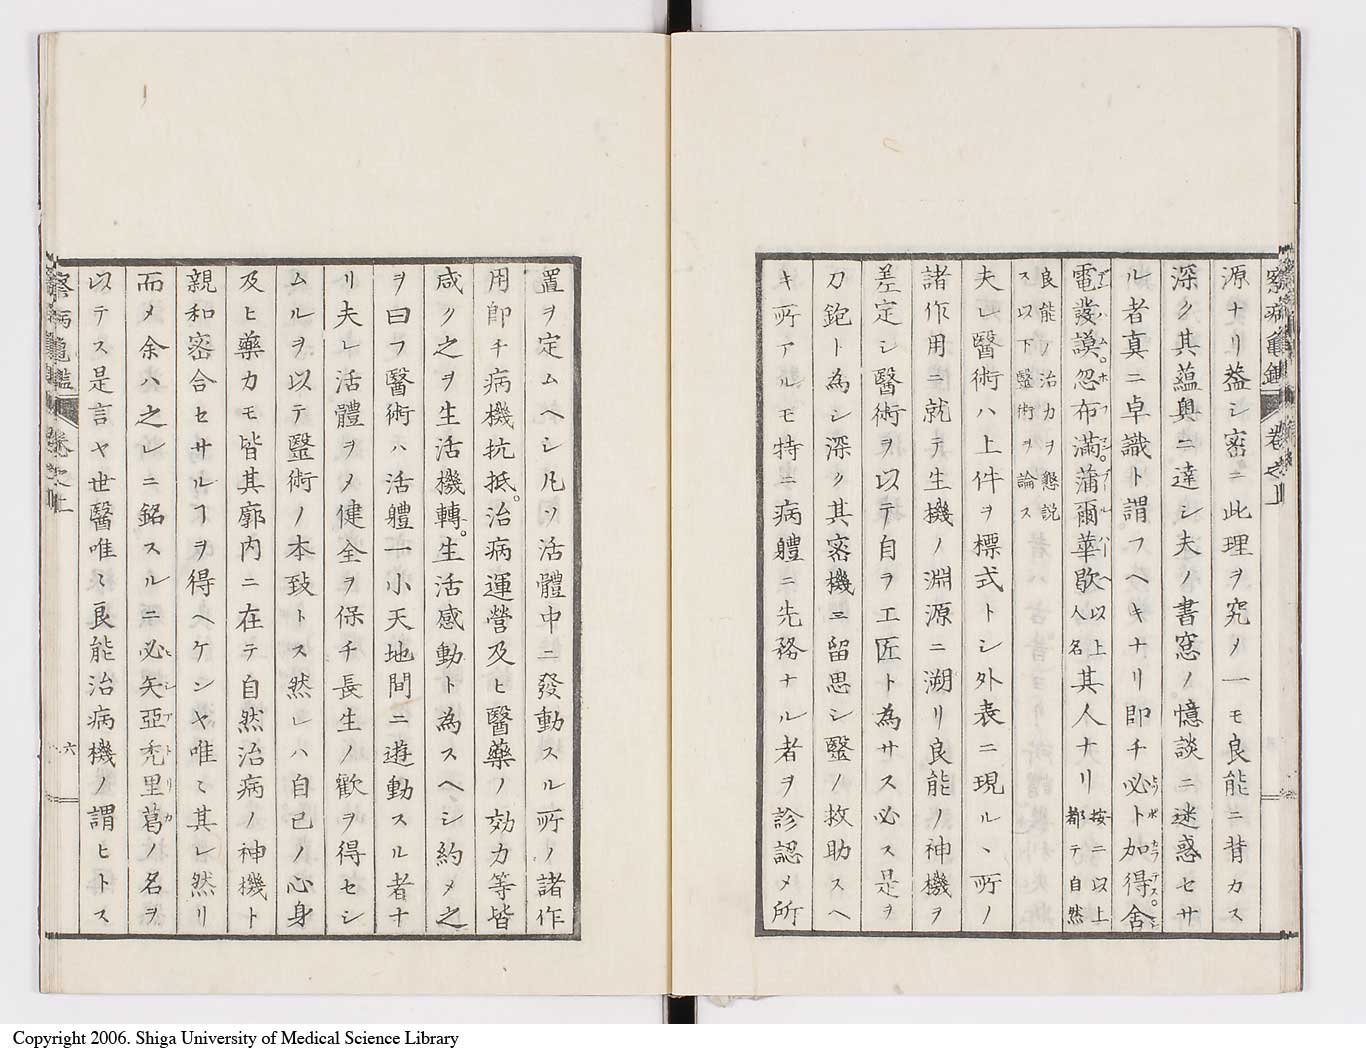 察病龜鑑 卷之上
源ナリ蓋シ密ニ此理ヲ究ノ一モ良能ニ背カス
深ク其蘊奥ニ達シ夫ノ書窓ノ憶談ニ迷惑セサ
ル者真ニ卓識ト謂フヘキナリ即チ必ト加得舎
電發謨忽布満蒲爾華歇以上人名其人ナリ按ニ以上都テ自然
良能ノ治力ヲ懇説ス以下醫術ヲ論ス
夫レ醫術ハ上件ヲ標式トシ外表ニ現ル、所ノ
諸作用ニ就テ生機ノ淵源ニ溯リ良能ノ神機ヲ
差定シ醫術ヲ以テ自ヲ工匠ト為サス必ス是ヲ
刀鉋ト為シ深ク其密機ニ留思シ毉ノ救助スヘ
キ所アルモ特ニ病體ニ先務ナル者ヲ診認メ所
置ヲ定ムヘシ凡ソ活體中ニ發動スル所ノ諸作
用即チ病機抗抵。治病運營及ヒ醫藥ノ効力等皆
咸ク之ヲ生活機轉。生活感動ト為スヘシ約メ之
ヲ曰フ醫術ハ活體一小天地間ニ遊動スル者ナ
リ夫レ活體ヲメ健全ヲ保チ長生ノ歡ヲ得セシ
ムルヲ以テ毉術ノ本致トス然レハ自己ノ心身
及ヒ藥力モ皆其廓内ニ在テ自然治病ノ神機ト
親和密合セサルヿヲ得ヘケンヤ唯ミ其レ然リ
而メ余ハ之レニ銘スルニ必矢亞禿里葛ノ名ヲ
以テス是言ヤ世醫唯ミ良能治病機ノ謂ヒトス
察病龜鑑 卷之上 六
Copyright 2006. Shiga University of Medical Science Library